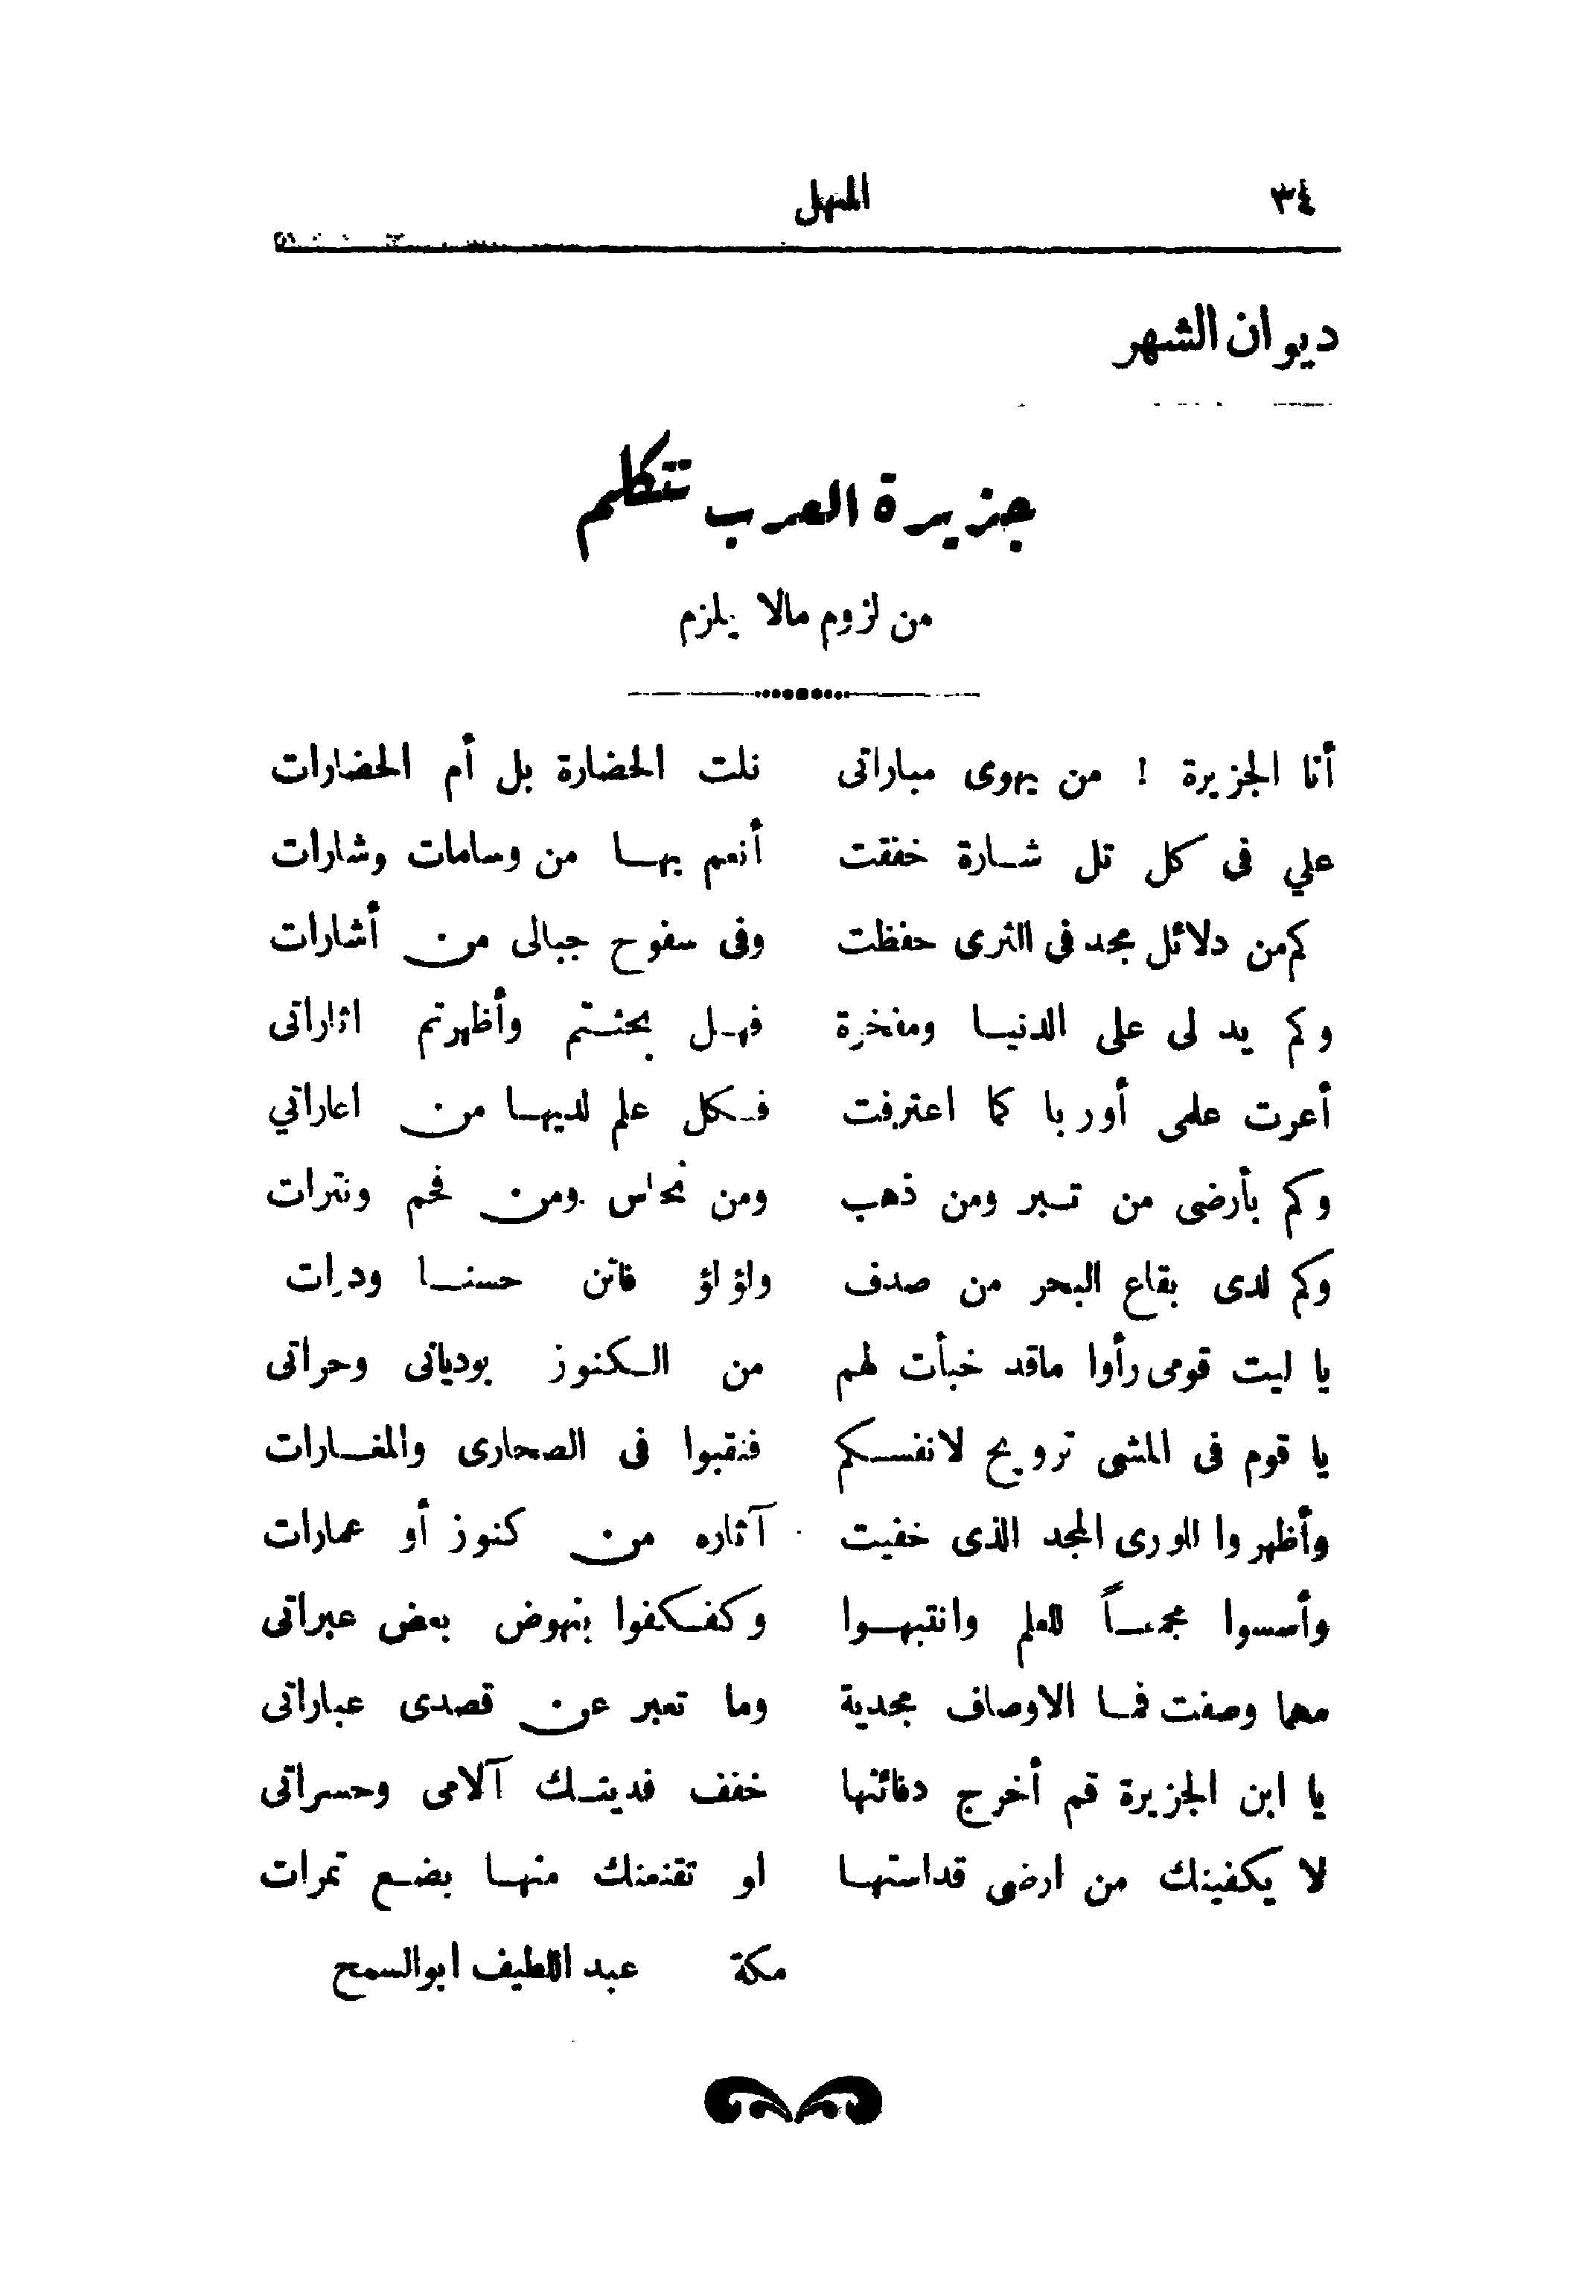 ٣٤ المنهل
ديوان الشهر
جزيرة العرب تتكلم
من لزوم مالا يلزم
أنا الجزيرة ! من يهوى مباراتى نلت الحضارة بل أم الحضارات
علي فى كل تل شارة خفقت أنعم بها من وسامات وشارات
كم من دلائل مجد فى الثرى حفظت وفى سفوح جبالى من أشارات
وكم يد لى على الدنيا ومفخرة فهل بحثتم وأظهرتم اثاراتى
أعرت علمى أوربا كما اعترفت فكل علم لديها من اعاراتي
وكم بأرضى من تبر ومن ذهب ومن نحاس ومن فحم ونترات
وكم لدى بقاع البحر من صدف ولؤلؤ فاتن حسنا ودرات
يا ليت قومى رأوا ماقد خبأت لهم من الكنوز بودياتى وحراتى
يا قوم فى المشى ترويح لانفسكم فنقبوا فى الصحارى والمغارات
وأظهروا للورى المجد الذى خفيت آثاره من كنوز أو عمارات
وأسسوا مجمعاً للعلم وانتبهوا وكفكفوا بنهوض بعض عبراتى
مهما وصفت فما الاوصاف مجدية وما تعبر عن قصدى عباراتى
يا ابن الجزيرة قم أخرج دفائنها خفف فديتك آلامى وحسراتى
لا يكفينك من ارضى قداستها او تقنعنك منها بضع تمرات
مكة عبد اللطيف ابوالسمح